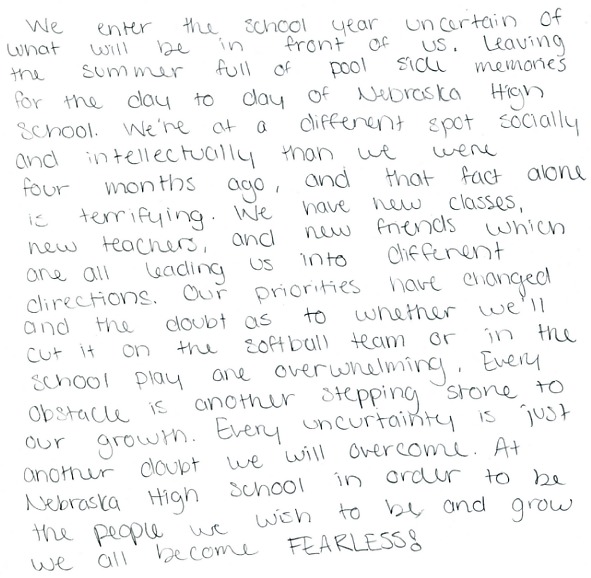 We enter the school year uncertain of
what will be in front of us. Leaving
the summer full of pool side memories
for the day to day of Nebraska High
School. We're at a different spot socially
and intellectually than we were
four months ago, and that fact alone
is terrifying. We have new classes,
new teachers, and new friends which
are all leading us into different
directions. Our priorities have changed
and the doubt as to whether we'll
cut it on the softball team or in the
school play are overwhelming. Every
obstacle is another stepping stone to
our growth. Every uncurtainty is just
another doubt we will overcome. At
Nebraska High School in order to be
the people we wish to be and grow
we all become FEARLESS!